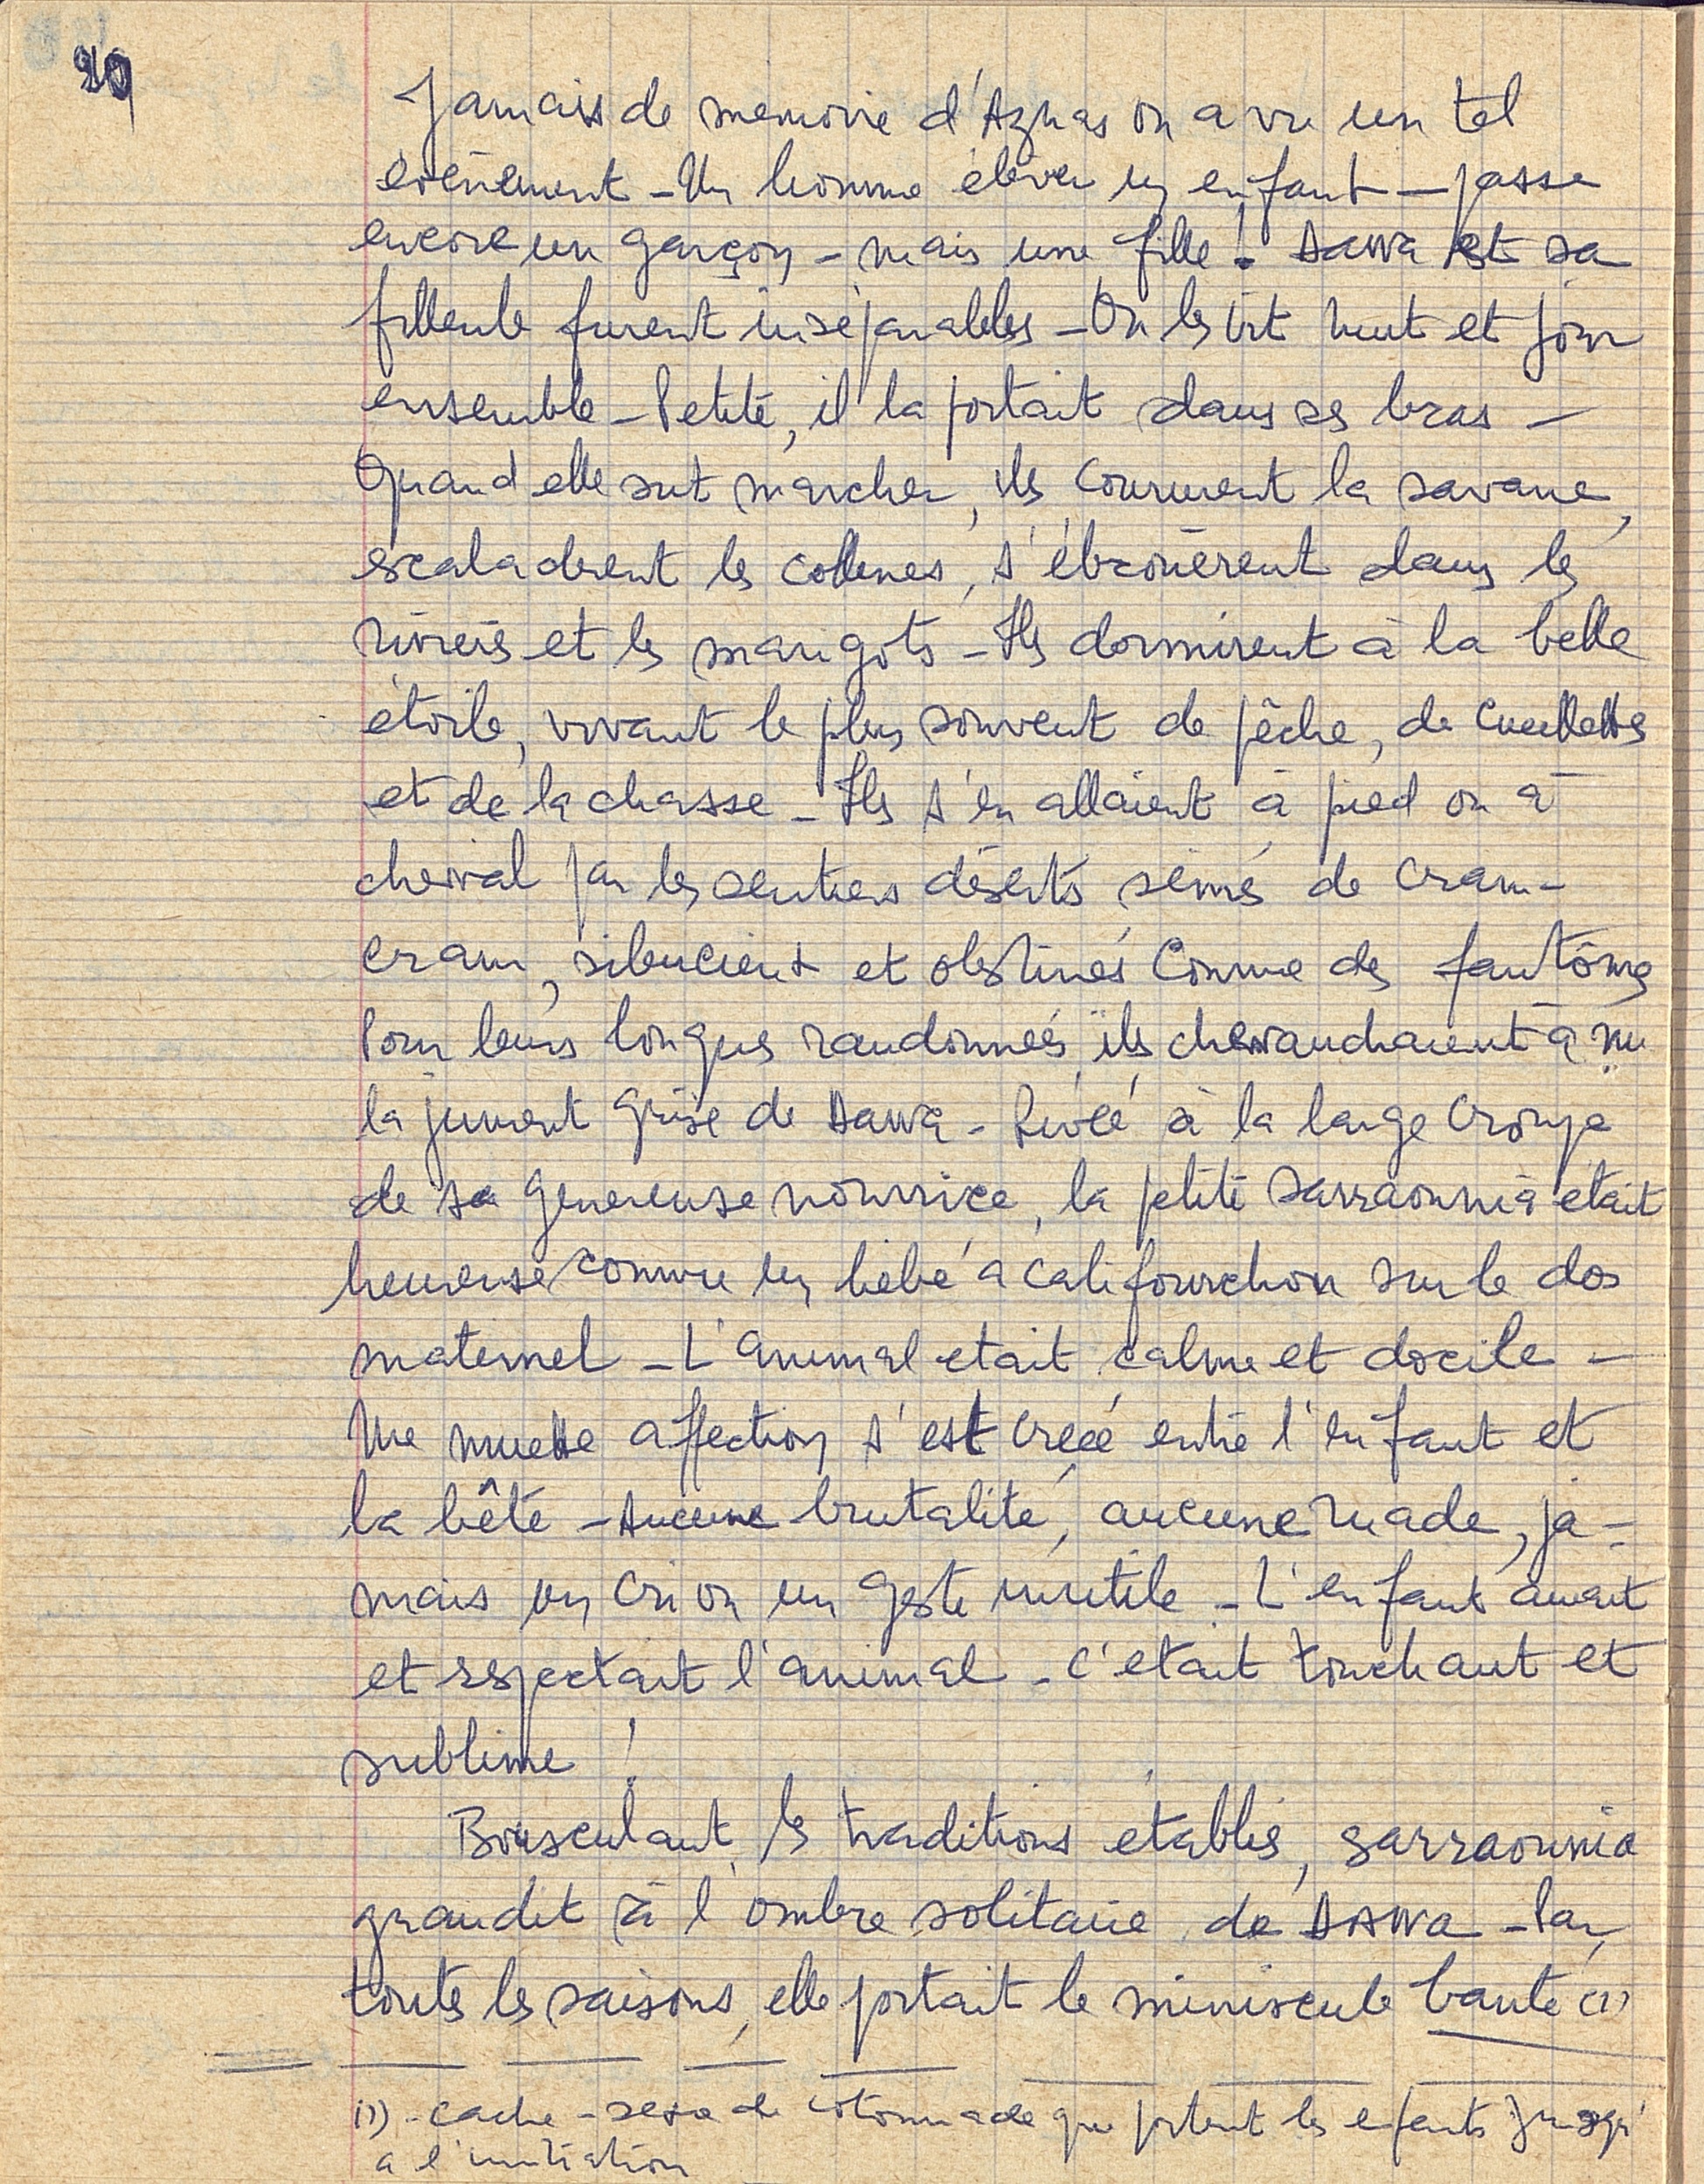 20
Jamais de memoire d'Aznas on a vu un tel
évènement - Un homme élever un enfant - passe
encore un garçon - mais une fille ! Dawa et sa
filleule furent inséparables - On les vit nuit et jour
ensemble - Petite, il la portait dans ses bras -
Quand elle sut marcher, ils coururent la savane,
escaladèrent les collines, s'ébrouèrent dans les
rivières et les marigots - Ils dormirent à la belle
étoile, vivant le plus souvent de pêche, de cueillettes
et de la chasse - Ils s'en allaient à pied ou à
cheval par les sentiers déserts semés de cram-
cram, silencieux et obstinés comme des fantômes
Pour leurs longues randonnées, ils chevauchaient à nu
la jument grise de Dawa - Rivée à la large croupe
de sa genereuse nourrice, la petite Sarraounia était
heureuse comme un bébé à califourchon sur le dos
maternel - L'animal etait calme et docile -
Une muette affection s'est créée entre l'enfant et
la bête - Aucune brutalité, aucune ruade, ja-
mais un cri ou un geste inutile - L'enfant aimait
et respectait l'animal - C'etait touchant et
sublime !
Bousculant les traditions etablies, Sarraounia
grandit à l'ombre solitaire de DAWA - Par
toutes les saisons, elle portait le miniscule bante (1)
(1) - cache-sexe de cotonnade que portent les enfants jusqu'
a l'initiation